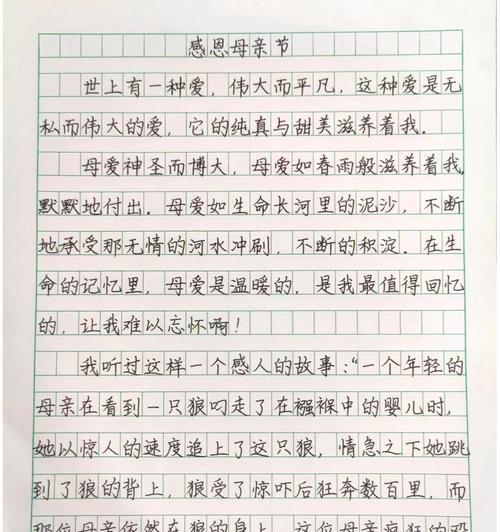 感恩母亲节
世上有一种爱，伟大而平凡，这种爱是无
私而伟大的爱，它的纯真与甜美滋养着我.
母爱神圣而博大，母爱如春雨般滋养着我，
默默地付出.母爱如生命长河里的泥沙，不断
地承受那无情的河水冲刷，不断的积淀.在生
命的记忆里，母爱是温暖的，是我最值得回忆
的，让我难以忘怀啊！
我听过这样一个感人的故事：“一个年轻的
母亲在看到一只狼叼走了在襁褓中的婴儿时，
她以惊人的速度追上了这只狼，情急之下她跳
到了狼的背上，狼受了惊吓后狂奔数百里，而
那位母亲依然在狼的身上，这位母亲疯狂的